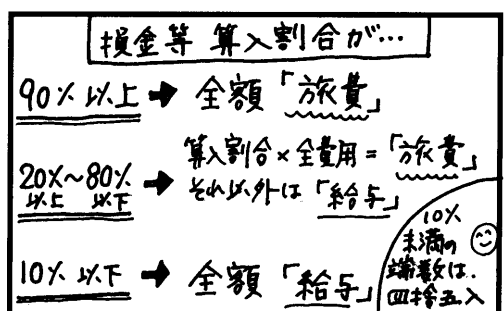 損金等 算入割合が…
90% 以上 → 全額「旅費」
20%~80%
以上 以下
→
算入割合×全費用=「旅費」
それ以外は「給与」
10% 以下 → 全額「給与」
10%
未満の
端数は、
四捨五入